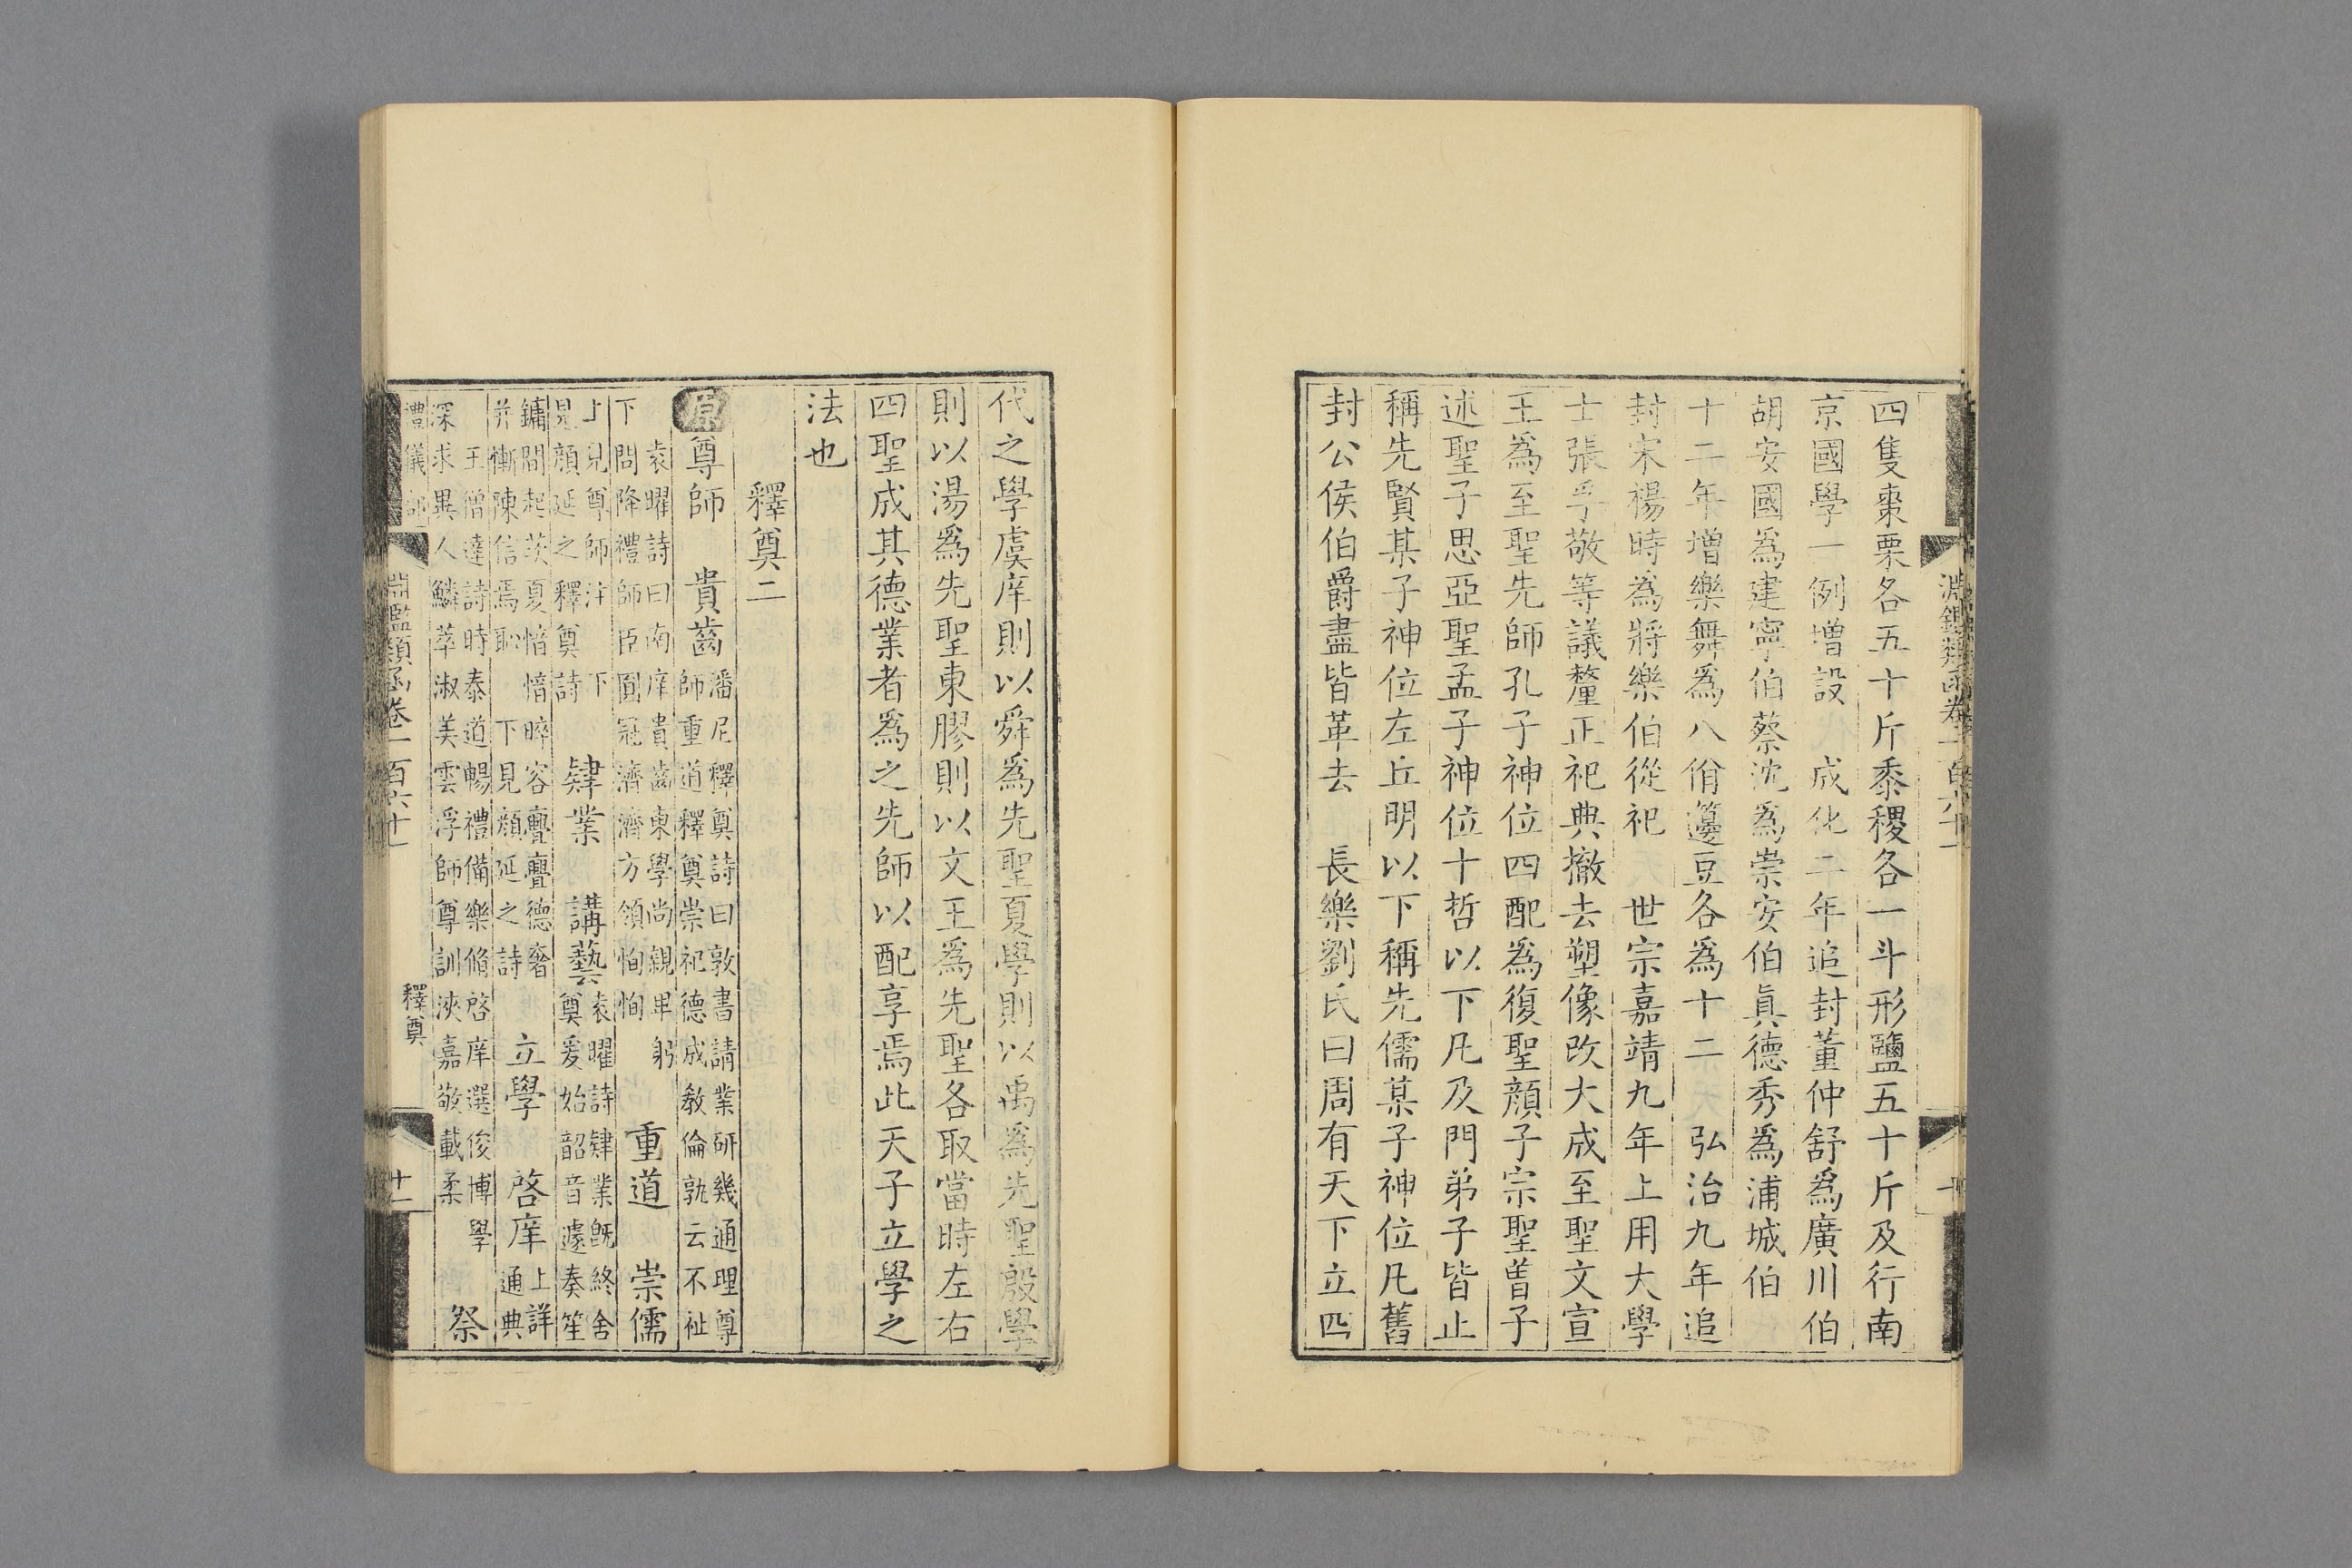 四隻棗栗各五十斤黍稷各一斗形鹽五十斤及行南
京國學一例增設　成化二年追封董仲舒爲廣川伯
胡安國爲建寧伯蔡沈爲崇安伯眞德秀爲浦城伯
十二年增樂舞爲八佾籩豆各爲十二　弘治九年追
封宋楊時爲將樂伯從祀　世宗嘉靖九年上用大學
士張孚敬等議釐正祀典撤去塑像改大成至聖文宣
王爲至聖先師孔子神位四配爲復聖顏子宗聖曾子
述聖子思亞聖孟子神位十哲以下凡及門弟子皆止
稱先賢某子神位左丘明以下稱先儒某子神位凡舊
封公侯伯爵盡皆革去　長樂劉氏曰周有天下立四
代之學虞庠則以舜爲先聖夏學則以禹爲先聖殷學
則以湯爲先聖東膠則以文王爲先聖各取當時左右
四聖成其德業者爲之先師以配享焉此天子立學之
法也
釋奠二
原尊師　貴齒潘尼釋奠詩曰敦書請業研幾通理尊
師重道釋奠崇祀德成敎倫孰云不祉
袁曜詩曰南庠貴齒東學尚親卑躬
下問降禮師臣圓冠濟濟方領恂恂　重道　崇儒
上見尊師注　下
見顏延之釋奠詩　肄業　講藝袁曜詩肄業旣終舍
奠爰始韶音遽奏笙
鏞間起茨夏愔愔晬容亹亹德奢
并慚陳信焉恥　下見顏延之詩　立學　啓庠上詳
通典　祭
王僧達詩時泰道暢禮備樂脩啓庠選俊博學
深求異人鱗萃淑美雲浮師尊訓浹嘉敬載柔
禮儀部
淵鑑類函卷一百六十一
釋奠
十一